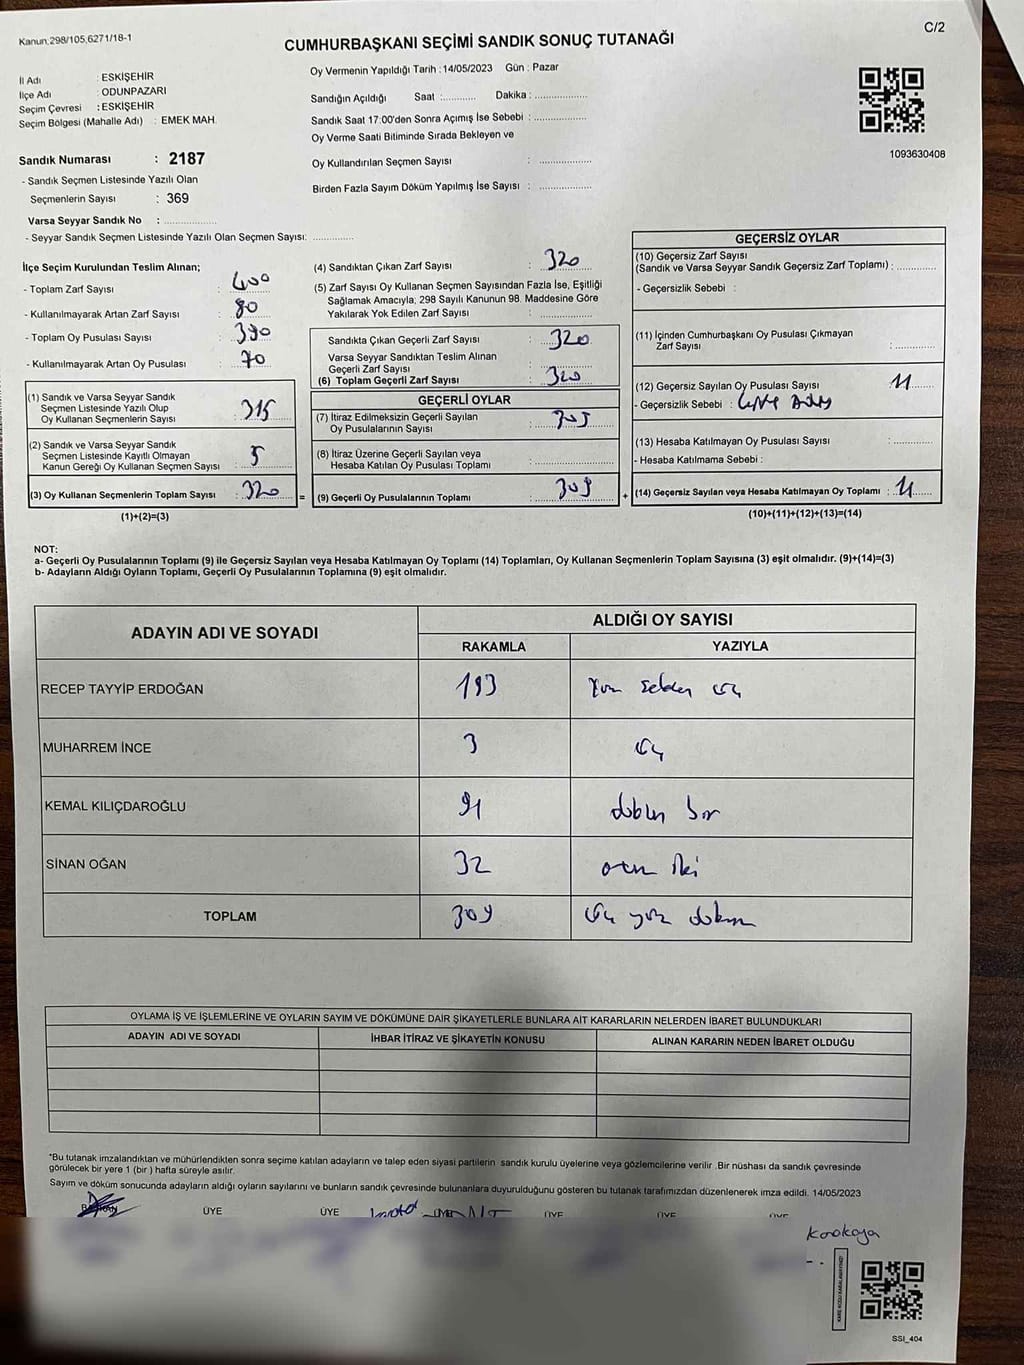 Kanun;298/105,6271/18-1
C/2
CUMHURBAŞKANI SEÇİMİ SANDIK SONUÇ TUTANAĞI
İl Adı : ESKİŞEHİR
İlçe Adı : ODUNPAZARI
Seçim Çevresi : ESKİŞEHİR
Seçim Bölgesi (Mahalle Adı) : EMEK MAH.
Sandık Numarası : 2187
- Sandık Seçmen Listesinde Yazılı Olan
Seçmenlerin Sayısı : 369
Varsa Seyyar Sandık No :
- Seyyar Sandık Seçmen Listesinde Yazılı Olan Seçmen Sayısı:
Oy Vermenin Yapıldığı Tarih : 14/05/2023 Gün : Pazar
Sandığın Açıldığı Saat : Dakika :
Sandık Saat 17:00'den Sonra Açımış İse Sebebi :
Oy Verme Saati Bitiminde Sırada Bekleyen ve
Oy Kullandırılan Seçmen Sayısı :
Birden Fazla Sayım Döküm Yapılmış İse Sayısı :
1093630408
İlçe Seçim Kurulundan Teslim Alınan;
- Toplam Zarf Sayısı : 400
- Kullanılmayarak Artan Zarf Sayısı : 80
- Toplam Oy Pusulası Sayısı : 390
- Kullanılmayarak Artan Oy Pusulası : 70
(1) Sandık ve Varsa Seyyar Sandık
Seçmen Listesinde Yazılı Olup
Oy Kullanan Seçmenlerin Sayısı : 315
(2) Sandık ve Varsa Seyyar Sandık
Seçmen Listesinde Kayıtlı Olmayan
Kanun Gereği Oy Kullanan Seçmen Sayısı : 5
(3) Oy Kullanan Seçmenlerin Toplam Sayısı : 320
(1)+(2)=(3)
(4) Sandıktan Çıkan Zarf Sayısı : 320
(5) Zarf Sayısı Oy Kullanan Seçmen Sayısından Fazla İse, Eşitliği
Sağlamak Amacıyla; 298 Sayılı Kanunun 98. Maddesine Göre
Yakılarak Yok Edilen Zarf Sayısı :
Sandıkta Çıkan Geçerli Zarf Sayısı : 320
Varsa Seyyar Sandıktan Teslim Alınan
Geçerli Zarf Sayısı :
(6) Toplam Geçerli Zarf Sayısı : 320
GEÇERLİ OYLAR
(7) İtiraz Edilmeksizin Geçerli Sayılan
Oy Pusulalarının Sayısı :
(8) İtiraz Üzerine Geçerli Sayılan veya
Hesaba Katılan Oy Pusulası Toplamı :
(9) Geçerli Oy Pusulalarının Toplamı : 309
=
+
GEÇERSİZ OYLAR
(10) Geçersiz Zarf Sayısı
(Sandık ve Varsa Seyyar Sandık Geçersiz Zarf Toplamı) :
- Geçersizlik Sebebi :
(11) İçinden Cumhurbaşkanı Oy Pusulası Çıkmayan
Zarf Sayısı :
(12) Geçersiz Sayılan Oy Pusulası Sayısı : 11
- Geçersizlik Sebebi :
(13) Hesaba Katılmayan Oy Pusulası Sayısı :
- Hesaba Katılmama Sebebi :
(14) Geçersiz Sayılan veya Hesaba Katılmayan Oy Toplamı : 11
(10)+(11)+(12)+(13)=(14)
NOT:
a- Geçerli Oy Pusulalarının Toplamı (9) ile Geçersiz Sayılan veya Hesaba Katılmayan Oy Toplamı (14) Toplamları, Oy Kullanan Seçmenlerin Toplam Sayısına (3) eşit olmalıdır. (9)+(14)=(3)
b- Adayların Aldığı Oyların Toplamı, Geçerli Oy Pusulalarının Toplamına (9) eşit olmalıdır.
ADAYIN ADI VE SOYADI
ALDIĞI OY SAYISI
RAKAMLA YAZIYLA
RECEP TAYYİP ERDOĞAN 183 Yüz seksen üç
MUHARREM İNCE 3 üç
KEMAL KILIÇDAROĞLU 91 doksan bir
SİNAN OĞAN 32 otuz iki
TOPLAM 309 üç yüz dokuz
OYLAMA İŞ VE İŞLEMLERİNE VE OYLARIN SAYIM VE DÖKÜMÜNE DAİR ŞİKAYETLERLE BUNLARA AİT KARARLARIN NELERDEN İBARET BULUNDUKLARI
ADAYIN ADI VE SOYADI İHBAR İTİRAZ VE ŞİKAYETİN KONUSU ALINAN KARARIN NEDEN İBARET OLDUĞU
*Bu tutanak imzalandıktan ve mühürlendikten sonra seçime katılan adayların ve talep eden siyasi partilerin sandık kurulu üyelerine veya gözlemcilerine verilir .Bir nüshası da sandık çevresinde
görülecek bir yere 1 (bir ) hafta süreyle asılır.
Sayım ve döküm sonucunda adayların aldığı oyların sayılarını ve bunların sandık çevresinde bulunanlara duyurulduğunu gösteren bu tutanak tarafımızdan düzenlenerek imza edildi. 14/05/2023
BAŞKAN ÜYE ÜYE ÜYE ÜYE ÜYE ÜYE
SSI_404